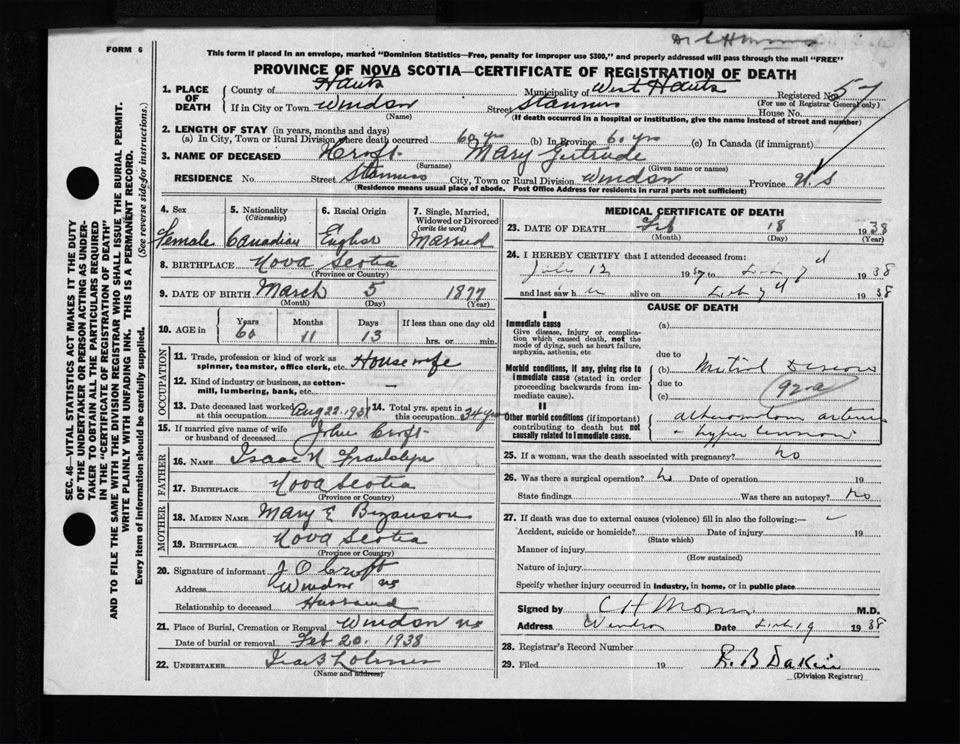 FORM 6
This form if placed in an envelope, marked "Dominion Statistics—Free, penalty for improper use $300," and properly addressed will pass through the mail "FREE"
PROVINCE OF NOVA SCOTIA—CERTIFICATE OF REGISTRATION OF DEATH
SEC. 46—VITAL STATISTICS ACT MAKES IT THE DUTY
OF THE UNDERTAKER OR PERSON ACTING AS UNDER-
TAKER TO OBTAIN ALL THE PARTICULARS REQUIRED
IN THE "CERTIFICATE OF REGISTRATION OF DEATH"
AND TO FILE THE SAME WITH THE DIVISION REGISTRAR WHO SHALL ISSUE THE BURIAL PERMIT.
WRITE PLAINLY WITH UNFADING INK. THIS IS A PERMANENT RECORD.
Every item of information should be carefully supplied. (See reverse side for instructions.)
1. PLACE OF DEATH County of Hants Municipality of West Hants Registered No. 57
(For use of Registrar General only)
If in City or Town Windsor Street Stannus House No.
(Name) (If death occurred in a hospital or institution, give the name instead of street and number)
2. LENGTH OF STAY (in years, months and days)
(a) In City, Town or Rural Division where death occurred 60 yrs (b) In Province 60 yrs (c) In Canada (if immigrant)
3. NAME OF DECEASED Croft Mary Gertrude
(Surname) (Given name or names)
RESIDENCE No. Street Stannus City, Town or Rural Division Windsor Province N.S
(Residence means usual place of abode. Post Office Address for residents in rural parts not sufficient)
4. Sex 5. Nationality (Citizenship) 6. Racial Origin 7. Single, Married, Widowed or Divorced (write the word)
Female Canadian English Married
8. BIRTHPLACE Nova Scotia
(Province or Country)
9. DATE OF BIRTH March 5 1877
(Month) (Day) (Year)
10. AGE in Years Months Days If less than one day old
60 11 13 hrs. or min.
OCCUPATION
11. Trade, profession or kind of work as spinner, teamster, office clerk, etc. Housewife
12. Kind of industry or business, as cotton-mill, lumbering, bank, etc. —
13. Date deceased last worked at this occupation Aug 22 1937 14. Total yrs. spent in this occupation 34 years
15. If married give name of wife or husband of deceased John Croft
FATHER
16. NAME Isaac N
17. BIRTHPLACE Nova Scotia
(Province or Country)
MOTHER
18. MAIDEN NAME Mary E Bezanson
19. BIRTHPLACE Nova Scotia
(Province or Country)
20. Signature of informant J O Croft
Address Windsor NS
Relationship to deceased Husband
21. Place of Burial, Cremation or Removal Windsor NS
Date of burial or removal Feb 20. 1938
22. UNDERTAKER
(Name and address)
MEDICAL CERTIFICATE OF DEATH
23. DATE OF DEATH Feb 18 1938
(Month) (Day) (Year)
24. I HEREBY CERTIFY that I attended deceased from:
July 12 1937 to 1938
and last saw h er alive on 1938
CAUSE OF DEATH
I
Immediate cause (a)
Give disease, injury or complica-
tion which caused death, not the
mode of dying, such as heart failure,
asphyxia, asthenia, etc due to
Morbid conditions, if any, giving rise to (b) Mitral Disease
immediate cause (stated in order due to
proceeding backwards from im- (c) 92-a
mediate cause).
II
Other morbid conditions (if important)
contributing to death but not
causally related to immediate cause.
hypertension
25. If a woman, was the death associated with pregnancy? no
26. Was there a surgical operation? no Date of operation 19
State findings Was there an autopsy? no
27. If death was due to external causes (violence) fill in also the following:—
Accident, suicide or homicide? Date of injury 19
(State which)
Manner of injury
(How sustained)
Nature of injury
Specify whether injury occurred in industry, in home, or in public place
Signed by C H Morris M.D.
Address Windsor Date Feb 19 1938
28. Registrar's Record Number
29. Filed 19 R. B Dakin
(Division Registrar)